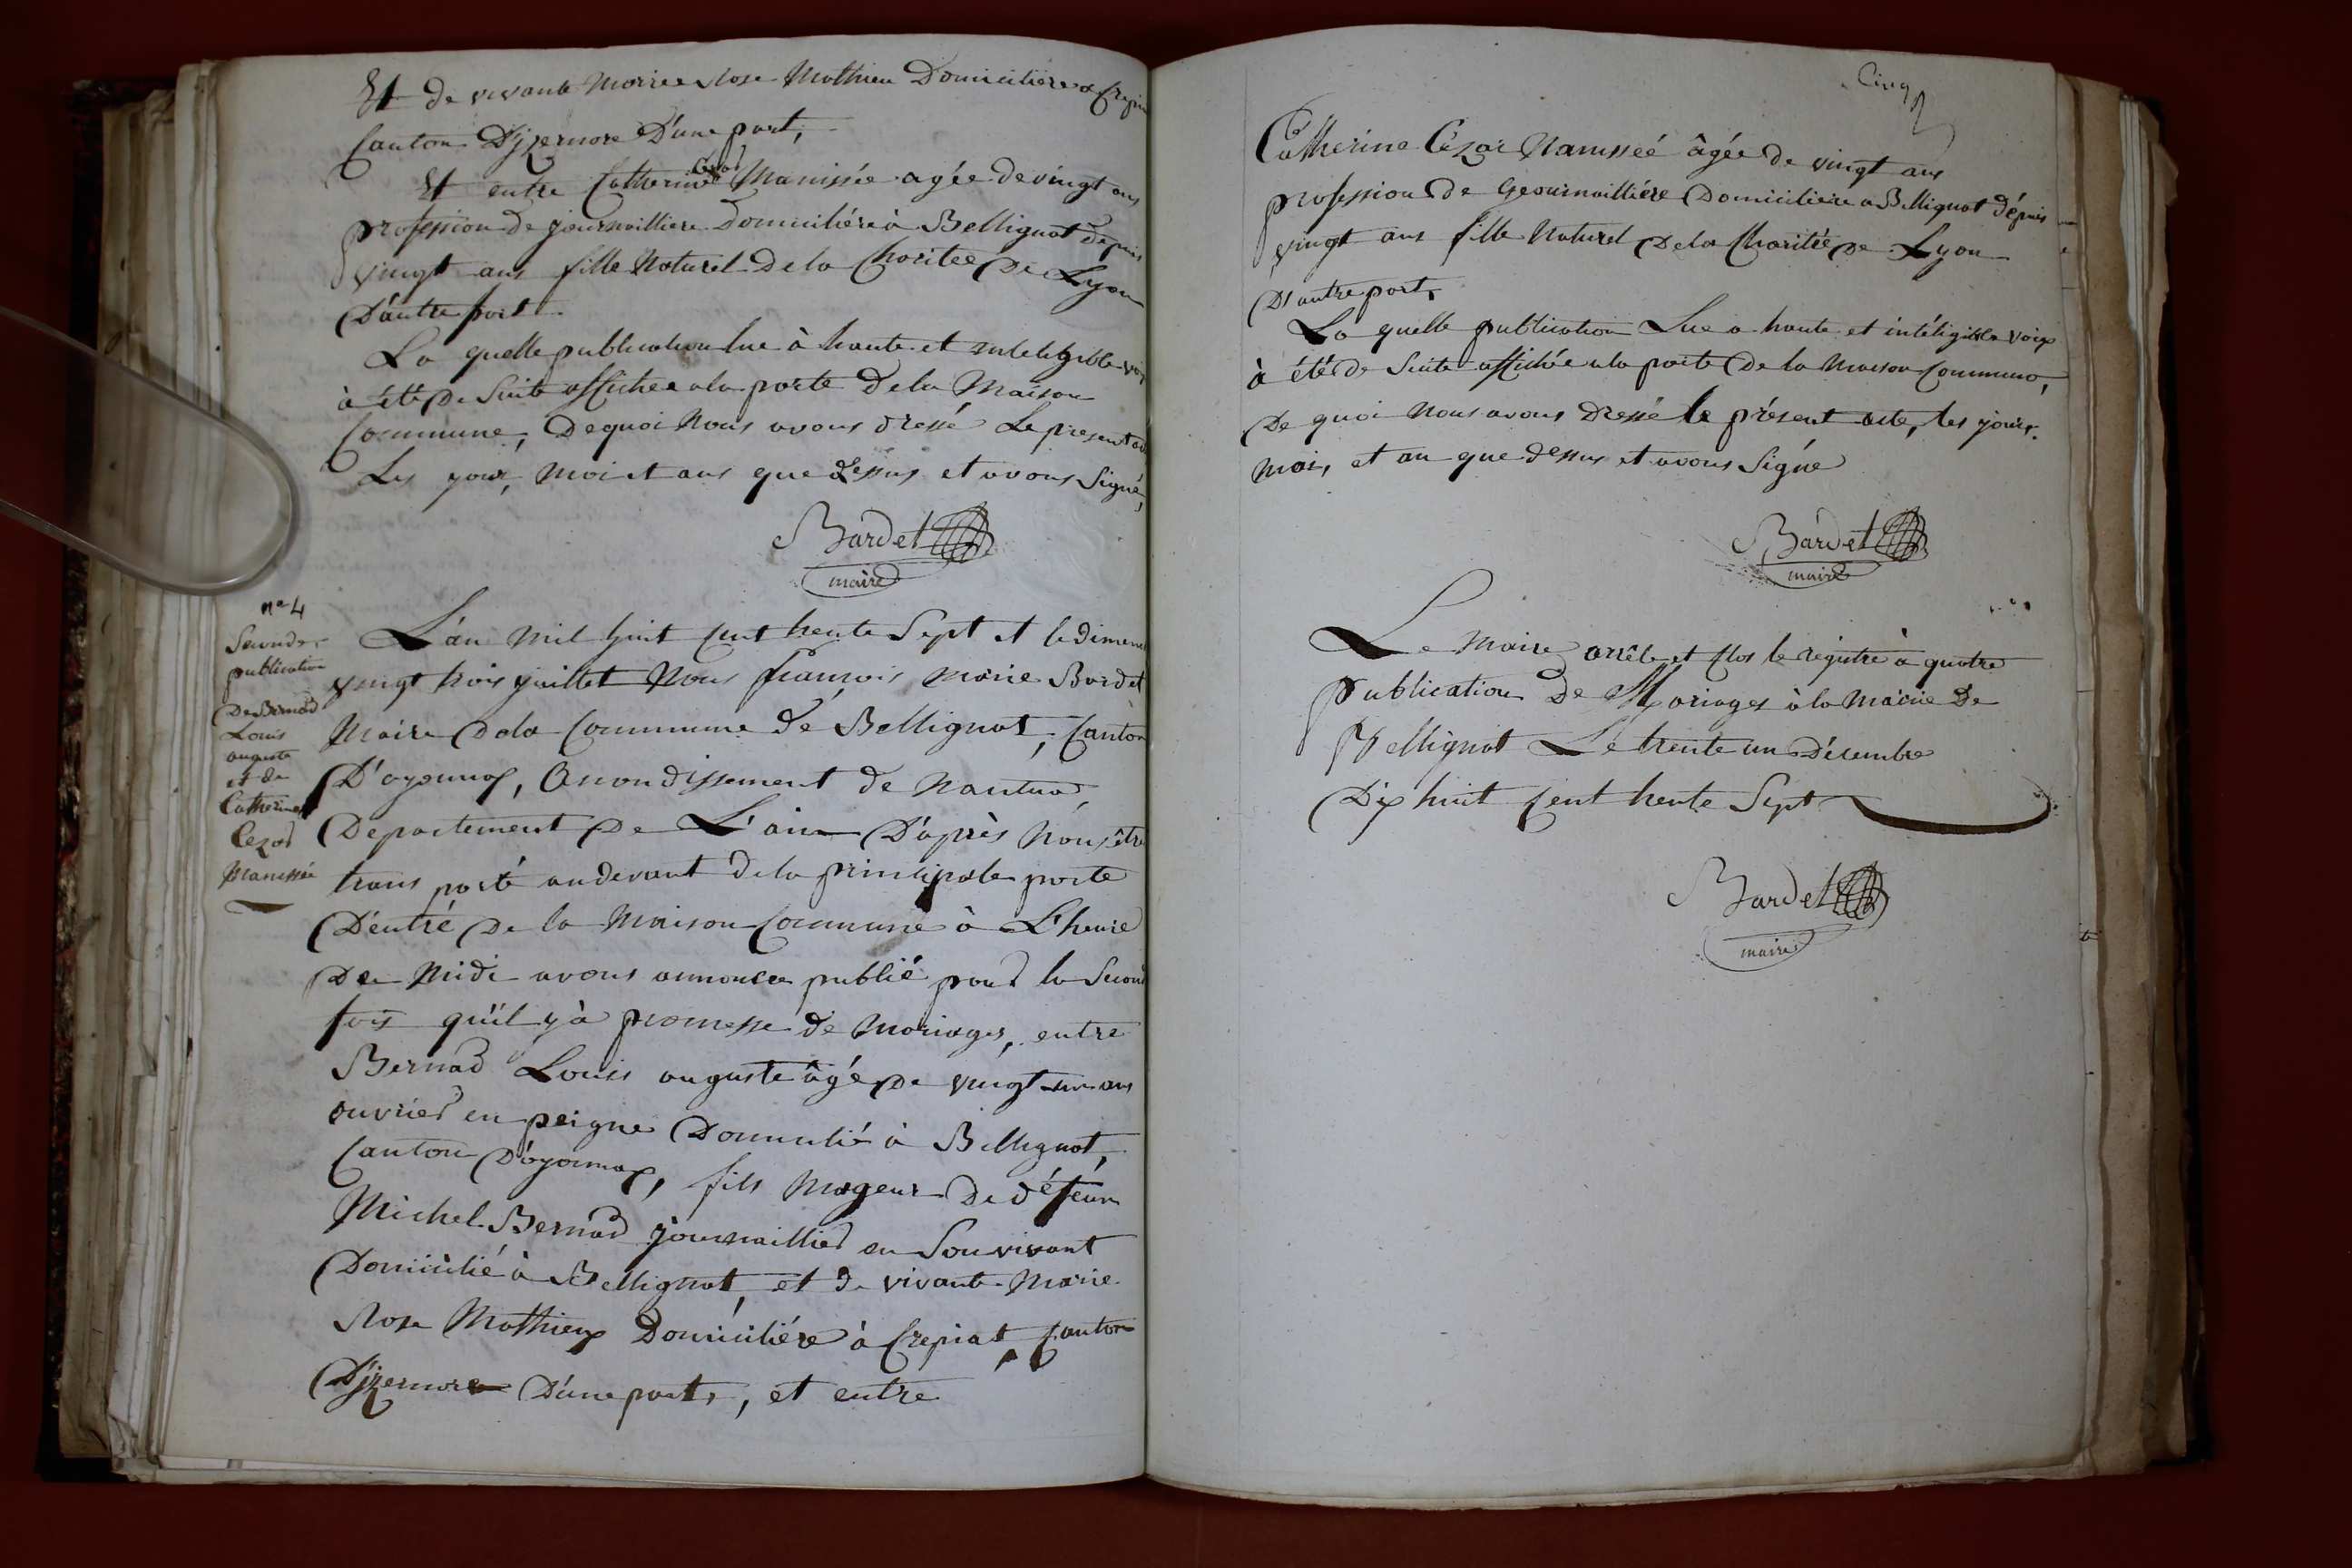 Et de vivante Mariee Rose Mathieu Domiciliére a Crepia
Canton D'jzernore D'une part,
Et entre Catherine Cézar Manissée agée de vingt ans
profession de journailliere Domiciliére à Bellignat depuis
vingt ans fille Naturel de la Charitée De Lyon
D'autre part.
La quelle publication lue à haute et intelegible voix
à été De Suite affichée a la porte de la Maison
Commune, De quoi Nous avons dressé Le present acte
Les jour, moi et ans que dessus et avons Signé,
Bardet
maire
nº 4
Seconde
publication
De Bernad
Louis
auguste
et de
Catherine
Cezar
Manissée
L'an Mil huit Cent trente Sept et le dimenc
vingt trois juillet Nous francois Marie Bardet
Maire De la Commune de Bellignat, Canton
D'oyonnax, Arrondissement de Nantua,
Departement De L'ain D'après Nous être
trans porté au devant de la principale porte
D'entré De la Maison Commune à L'heure
De Midi avons annoncer publié pour la Second
fois qu'il y à promesse de Mariages, entre
Bernad Louis auguste âgé De vingt un ans
ouvrier en peigne Domicilié à Bellignat,
Canton D'oyonnax, fils Mageur De défeunt
Michel Bernad journaillier en Son vivant
Domicilié à Bellignat, et de vivante Marie
Rose Mathieux Domiciliére à Crepiat, Canton
D'jzernore D'une part, et entre
Cinq
Catherine Cézar Manisseé âgée de vingt ans
profession De Geournailliére Domiciliere a Bellignat dépuis
vingt ans fille Naturel De la Charitée De Lyon
D'autre part,
La quelle publication Lue a haute et intéligible voix
à été de Suite affichée a la porte De la Maison Commune,
De quoi Nous avons Dressé le présent acte, les jour,
moi, et an que dessus et avons Signé
Bardet
maire
Le Maire arrête et clos le registre à quatre
publication De Mariages à la Mairie De
Bellignat Le trente un Décembre
Dix huit Cent trente Sept
Bardet
maire